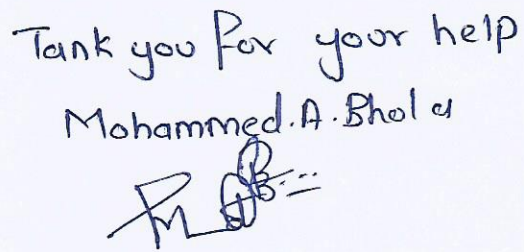 Tank you for your help
Mohammed.A.Bhola